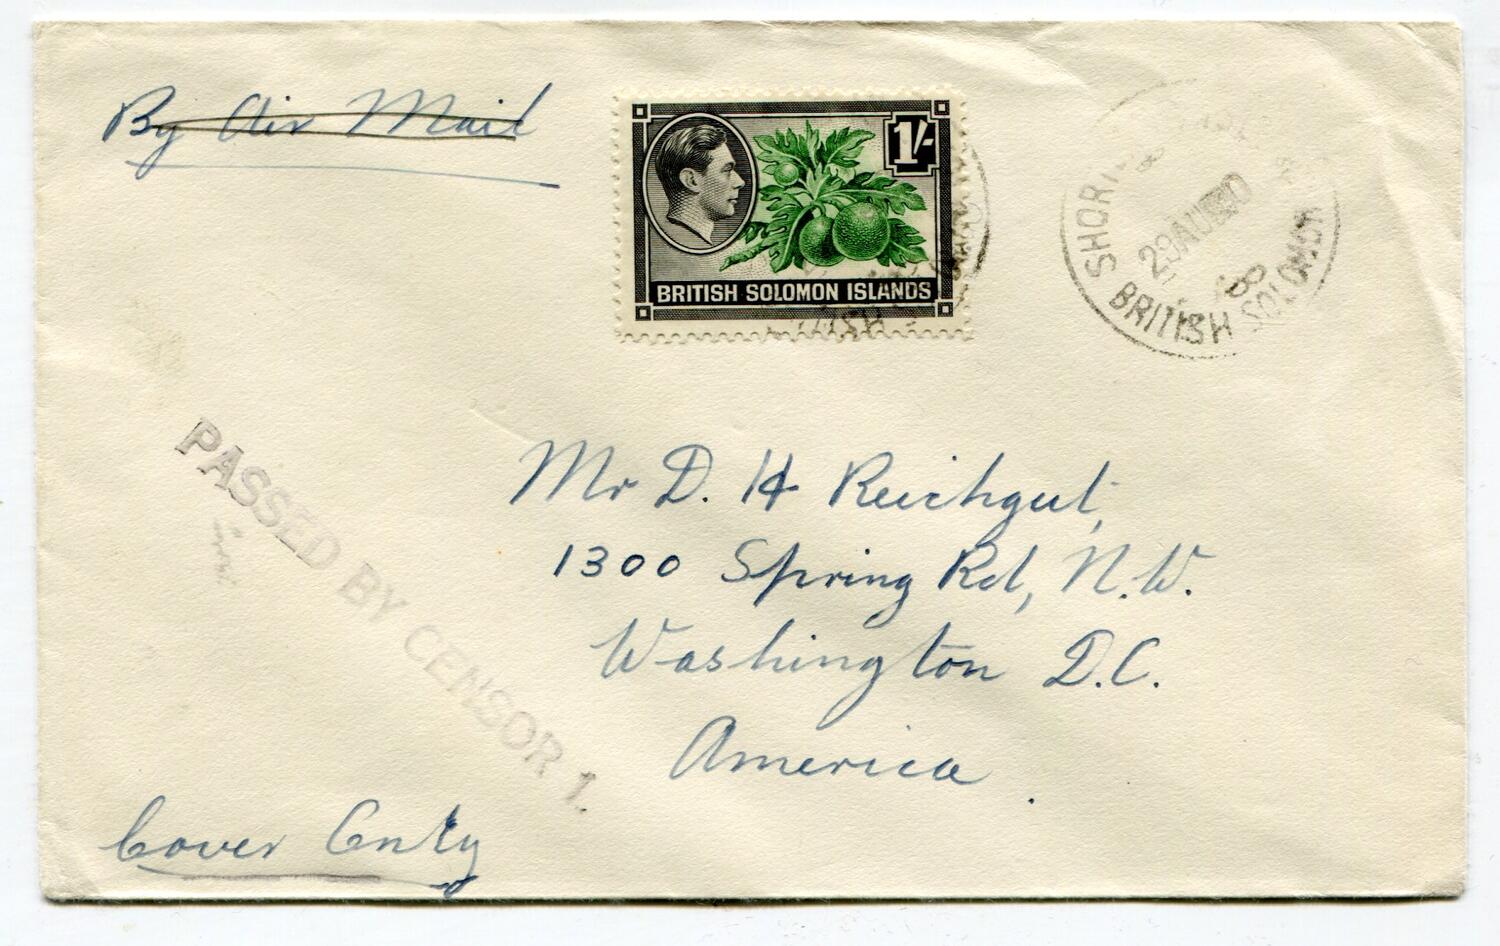 By Air Mail
1/-
BRITISH SOLOMON ISLANDS
29 AU 40
BRITISH SOLOMON
PASSED BY CENSOR 1.
Mr D. H Reichgut,
1300 Spring Rd, N.W.
Washington D.C.
America.
Cover Only